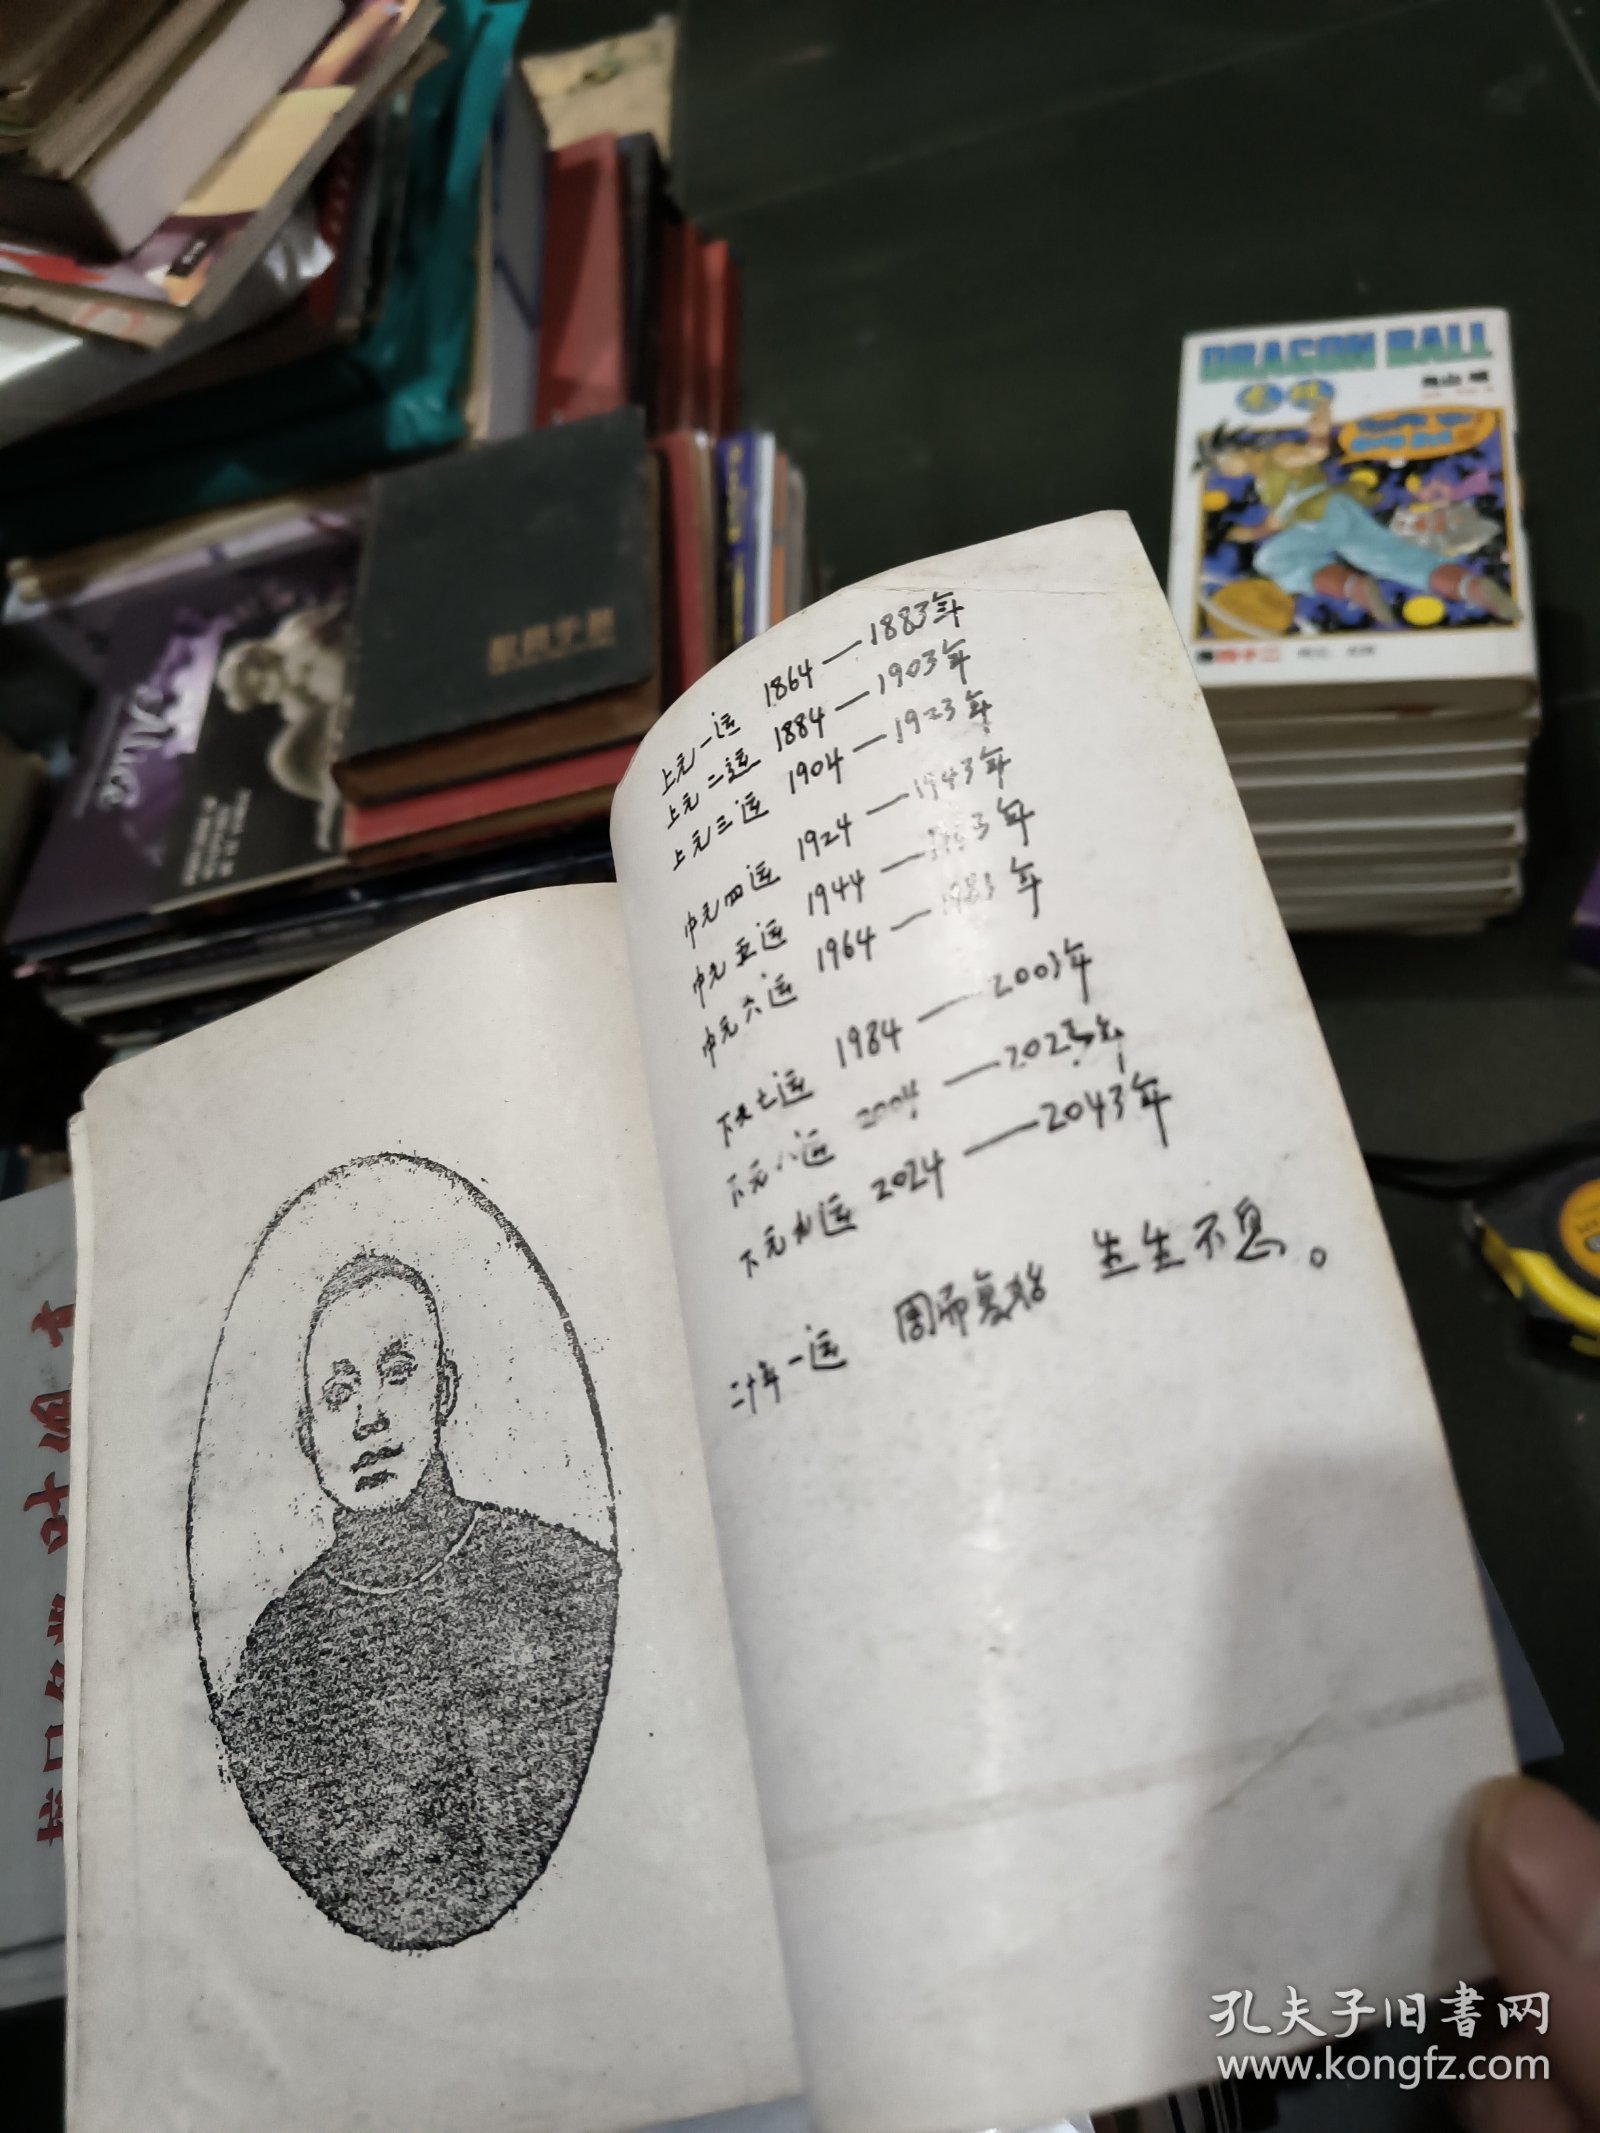 上元一运 1864—1883年
上元二运 1884—1903年
上元三运 1904—1923年
中元四运 1924—1943年
中元五运 1944—1963年
中元六运 1964—1983年
下元七运 1984—2003年
下元八运 2004—2023年
下元九运 2024—2043年
二十年一运 周而复始 生生不息。
DRAGON BALL
鸟山明
Alice
孔夫子旧书网
www.kongfz.com